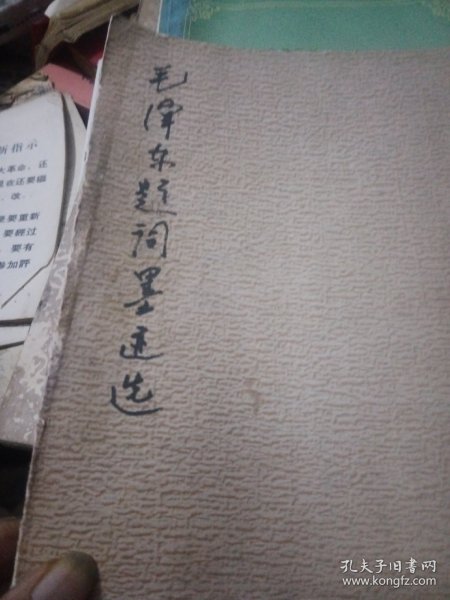 毛泽东题词墨迹选
新指示
大革命，还
现在还要编
改。
要重新
要經过
要有
参加評
孔夫子旧书网
www.kongfz.com